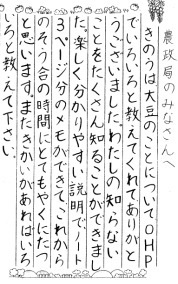 農政局のみなさんへ
きのうは大豆のことについてOHP
でいろいろと教えてくれてありがと
うございました。わたしの知らない
ことをたくさん知ることができまし
た。楽しく分かりやすい説明でノート
3ページ分のメモができて、これから
のそう合の時間にとてもやくにたつ
と思います。またきかいがあればいろ
いろと教えて下さい。